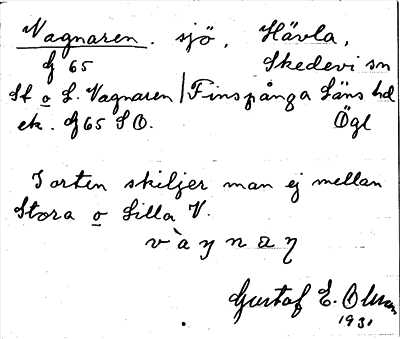 Vagnaren. sjö. Hävla,
G 65 Skedevi sn
St o L. Vagnaren | Finspånga Läns hd
ek. G65 SO. Ögl
I orten skiljer man ej mellan
Stora o Lilla V.
Gustaf E. Olsson
1931